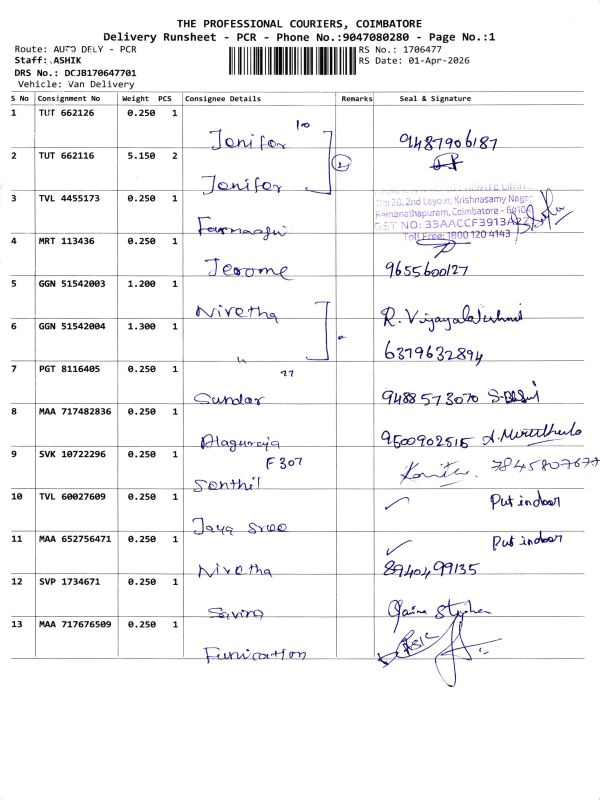 THE PROFESSIONAL COURIERS, COIMBATORE
Delivery Runsheet - PCR - Phone No.:9047080280 - Page No.:1
Route: AUTO DELY - PCR RS No.: 1706477
Staff: ASHIK RS Date: 01-Apr-2026
DRS No.: DCJB170647701
Vehicle: Van Delivery
S No Consignment No Weight PCS Consignee Details Remarks Seal & Signature
1 TUT 662126 0.250 1
Jenifar 9487906187
2 TUT 662116 5.150 2
Jenifar
3 TVL 4455173 0.250 1
No: 20, 2nd Layout, Krishnasamy Nagar
Ramanathapuram, Coimbatore - 641045
GST NO: 33AACCF3913A2Z
Toll Free: 1800 120 4143
4 MRT 113436 0.250 1
Jerome 9655600127
5 GGN 51542003 1.200 1
Nivetha R. Vijayalakshmi
6 GGN 51542004 1.300 1
" 6379632894
7 PGT 8116405 0.250 1
Sundar 9488573070
8 MAA 717482836 0.250 1
Alaguraja 9500902515
9 SVK 10722296 0.250 1
F307
Senthil 7845807677
10 TVL 60027609 0.250 1
Put indoor
Jaya Sree
11 MAA 652756471 0.250 1
Put indoor
Nivetha 8940499135
12 SVP 1734671 0.250 1
Savira
13 MAA 717676509 0.250 1